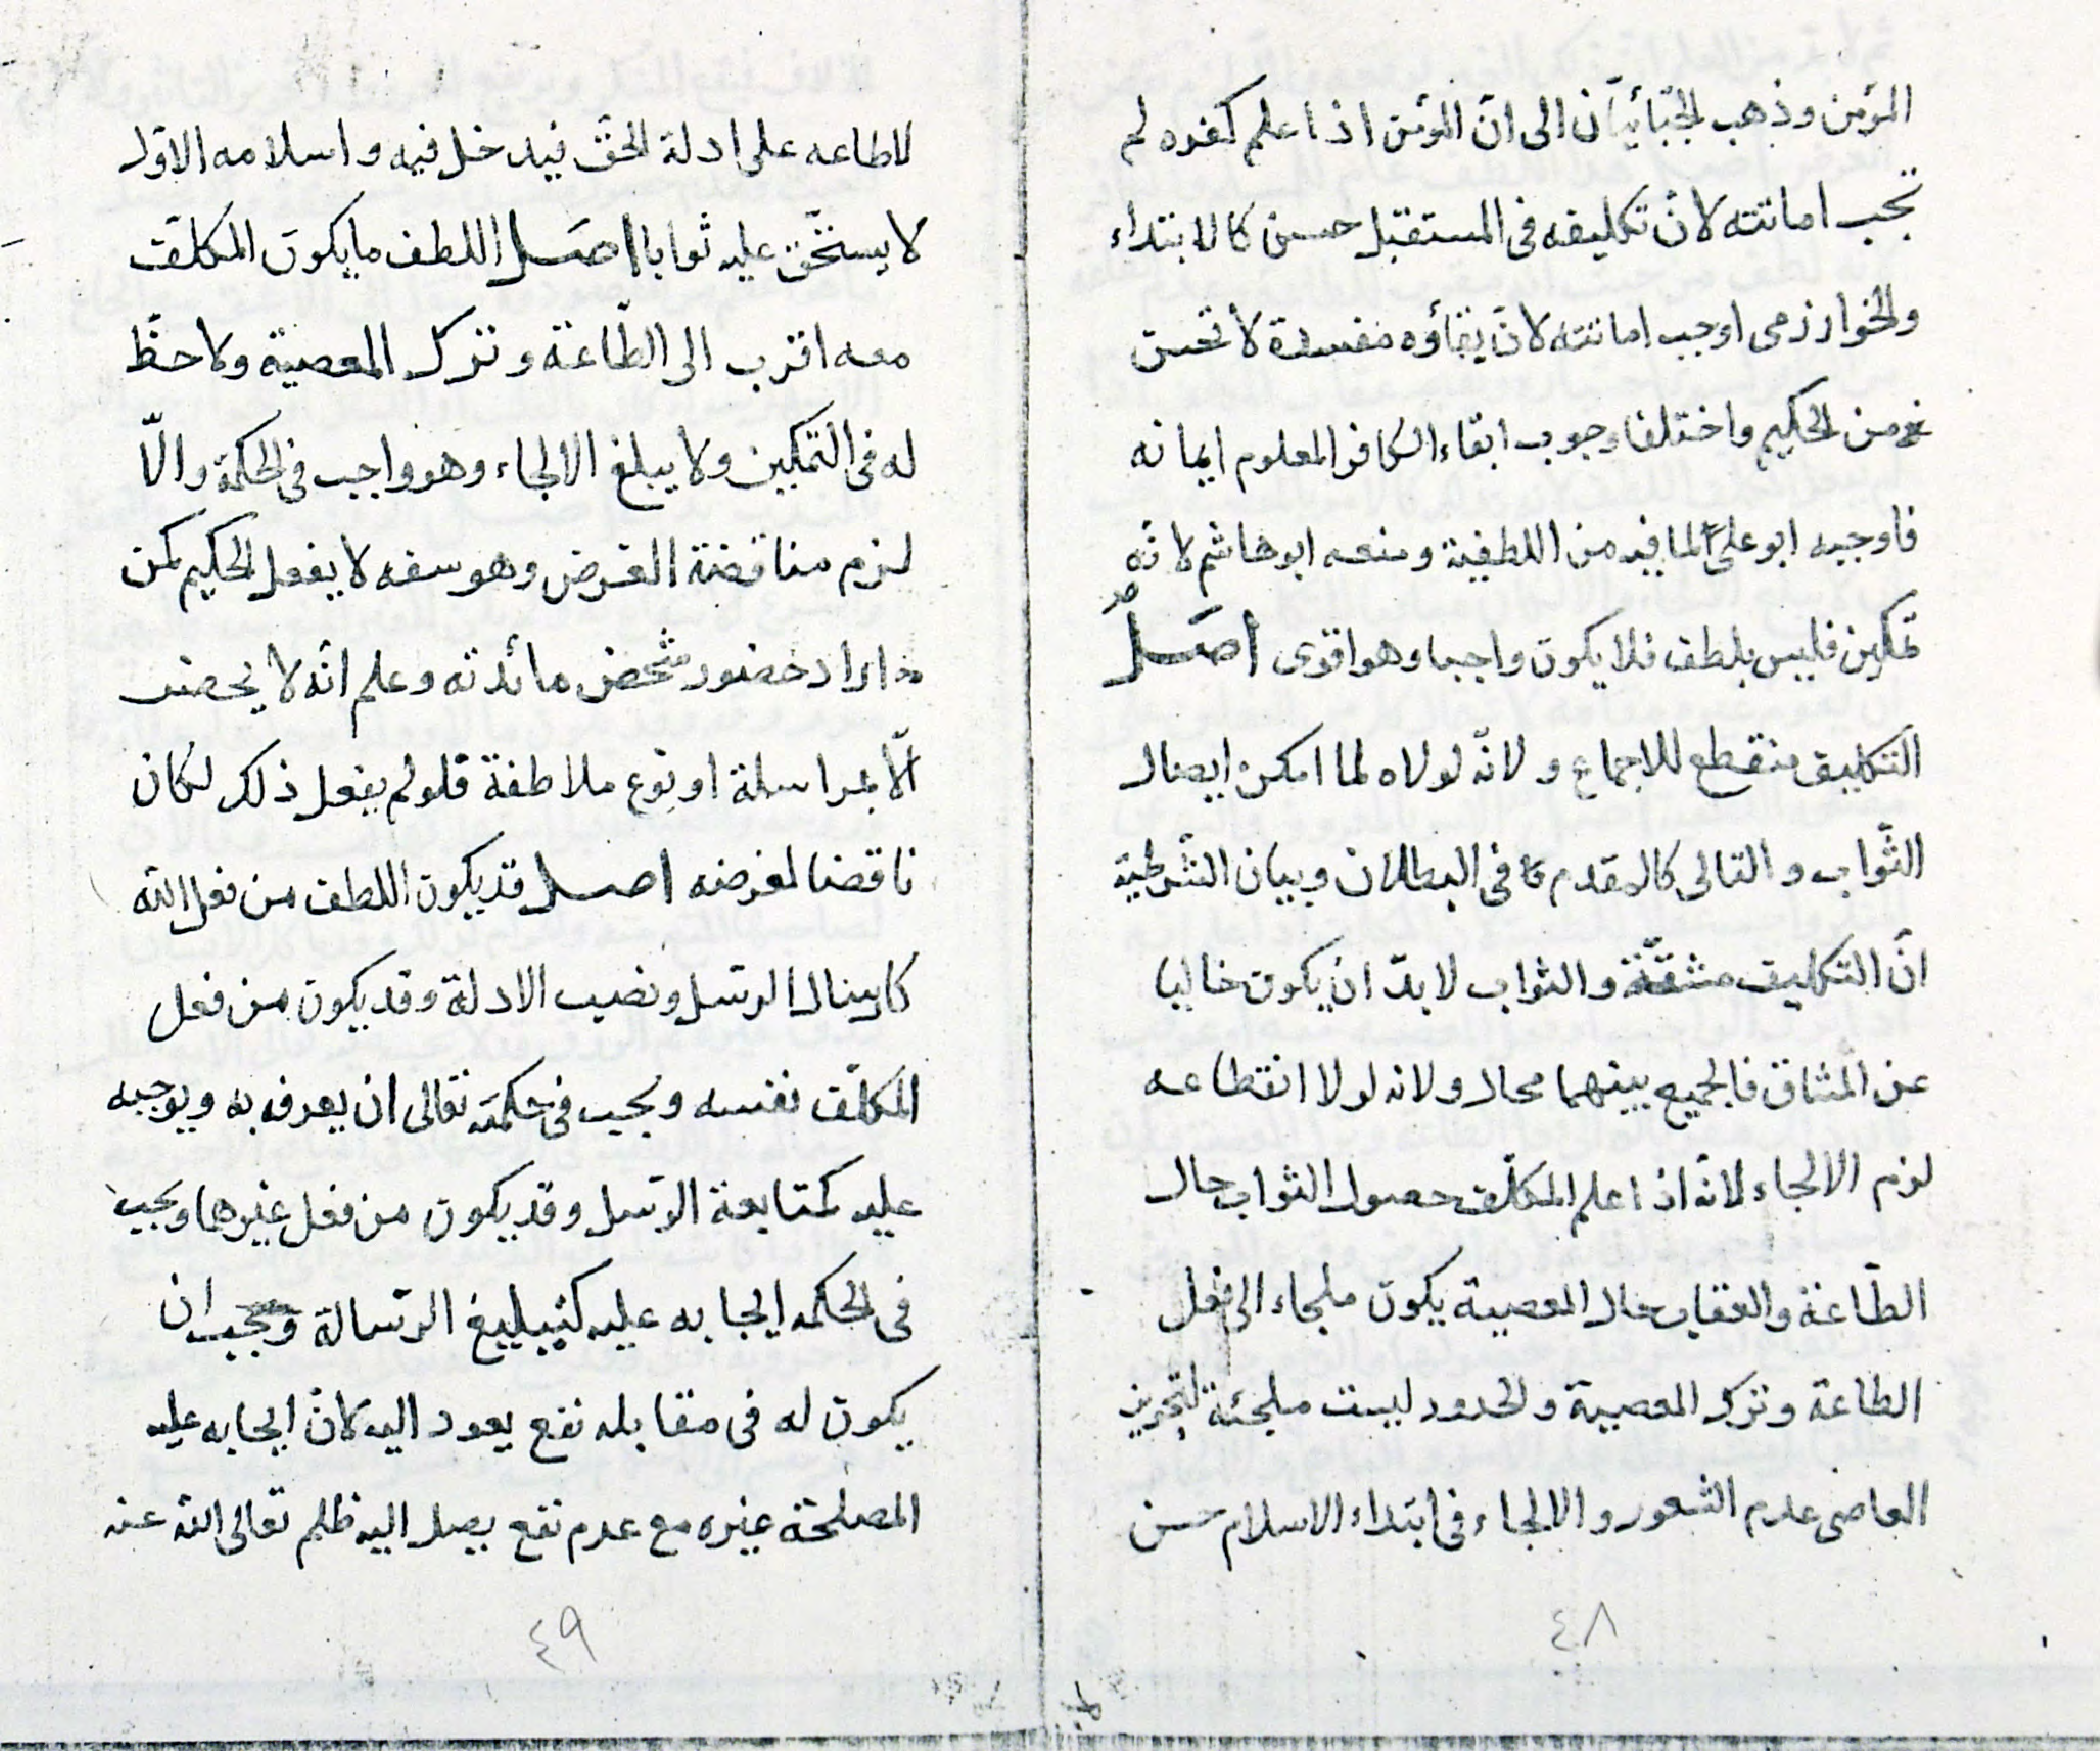 المؤمن وذهب الجبّائيّان الى انّ المؤمن اذا علم كفره لم
تجب اماتته لانّ تكليفه فى المستقبل حسن كالابتداء
والخوارزمى اوجب اماتته لانّ بقاؤه مفسدة لا تحسن
من الحكيم واختلفا وجوب ابقاء الكافر المعلوم ايمانه
فاوجبه ابو علىّ لما فيه من اللطفية ومنعه ابو هاشم لانّه
تمكين فليس بلطف فلا يكون واجبا وهو اقوى اصلٌ
التكليف منقطع للاجماع ولانّه لولاه لما امكن ايصال
الثّواب والتالى كالمقدم فى البطلان وبيان الشّرطية
انّ التكليف مشقّة والثواب لا بدّ ان يكون خاليا
عن المشاق فالجميع بينهما محال ولانه لولا انقطاعه
لزم الالجاء لانّه اذا علم المكلّف حصول الثواب حال
الطّاعة والعقاب حال المعصية يكون ملجاء الى فعل
الطاعة وترك المعصية والحدود ليست ملجئة لتجويز
العاصى عدم الشعور والالجاء فى ابتداء الاسلام حسن
٤٨
للاطاعه على ادلة الحقّ فيدخل فيه واسلامه الاوّل
لا يستحّق عليه ثوابا اصل اللطف ما يكون المكلّف
معه اقرب الى الطّاعة وترك المعصية ولا حظّ
له فى التمكين ولا يبلغ الالجاء وهو واجب فى الحكمة والّا
لزم مناقضة الغرض وهو سفه لا يفعل الحكيم كمن
اراد حضور شخص مائدته وعلم انّه لا يحضر
الّا بمراسلة او نوع ملاطفة فلو لم يفعل ذلك لكان
ناقضا لغرضه اصل قد يكون اللطف من فعل الله
كارسال الرسّل ونصب الادلة وقد يكون من فعل
المكلّف نفسه ويجب فى حكمته تعالى ان يعرف به ويوجبه
عليه كمتابعة الرسّل وقد يكون من فعل غيرهما ويجب
فى الحكمه ايجابه عليه كتبليغ الرّسالة ويجب ان
يكون له فى مقابله نفع يعود اليه كانّ ايجابه عليه
المصلحة غيره مع عدم نفع يصل اليه ظلم تعالى الله عنه
٤٩